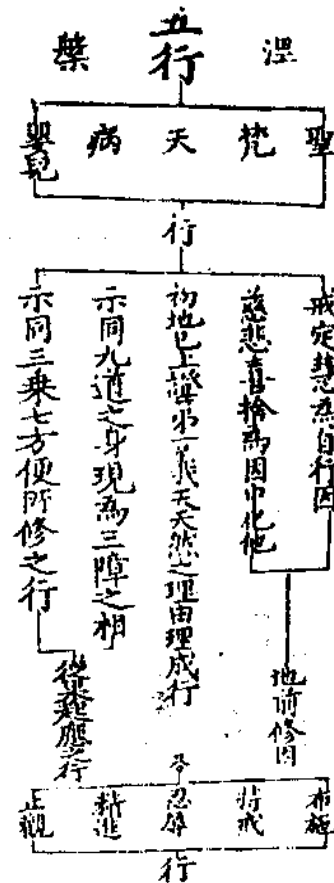 涅槃
五行
聖
梵
天
病
嬰兒
行
戒定慧為自行因
慈悲喜捨為因中化他
地前修因
初地已上證第一義天天然之理由理成行
示同九道之身現為三障之相
示同三乘七方便所修之行
從果起應之行
布施
持戒
忍辱
精進
正觀
行